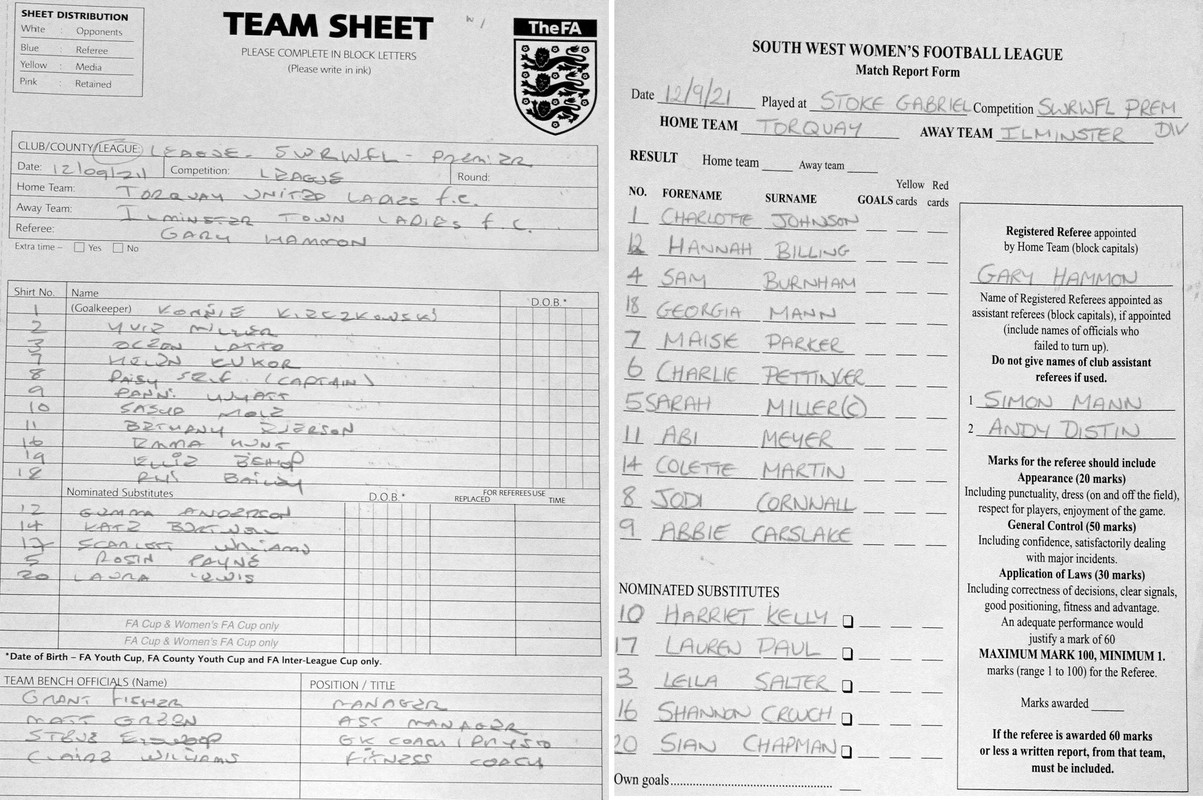 SHEET DISTRIBUTION
White : Opponents
Blue : Referee
Yellow : Media
Pink : Retained
TEAM SHEET
PLEASE COMPLETE IN BLOCK LETTERS
(Please write in ink)
The FA
CLUB/COUNTY/LEAGUE: LEAGUE. SWRWFL - PREMIER
Date: 12/09/21 Competition: LEAGUE Round:
Home Team: TORQUAY UNITED LADIES f.c.
Away Team: ILMINSTER TOWN LADIES f.c.
Referee: GARY HAMMON
Extra time – Yes No
Shirt No. Name D.O.B.*
1 (Goalkeeper)
2 MILLER
3
7 HELEN
8 DAISY (CAPTAIN)
9 WYATT
10
11 BETHANY
16 EMMA HUNT
19 ELLIE
18 BAILEY
Nominated Substitutes D.O.B.* FOR REFEREES USE REPLACED TIME
12 GEMMA ANDERSON
14 KATE
17 SCARLETT WILLIAMS
5 ROSIN PAYNE
20 LAURA LEWIS
FA Cup & Women's FA Cup only
FA Cup & Women's FA Cup only
*Date of Birth – FA Youth Cup, FA County Youth Cup and FA Inter-League Cup only.
TEAM BENCH OFFICIALS (Name) POSITION / TITLE
GRANT FISHER MANAGER
MATT GREEN AST MANAGER
STEVE GK COACH / PHYSIO
CLAIRE WILLIAMS FITNESS COACH
SOUTH WEST WOMEN'S FOOTBALL LEAGUE
Match Report Form
Date 12/9/21 Played at STOKE GABRIEL Competition SWRWFL PREM DIV
HOME TEAM TORQUAY AWAY TEAM ILMINSTER
RESULT Home team Away team
NO. FORENAME SURNAME GOALS Yellow cards Red cards
1 CHARLOTTE JOHNSON
12 HANNAH BILLING
4 SAM BURNHAM
18 GEORGIA MANN
7 MAISIE PARKER
6 CHARLIE PETTINGER
5 SARAH MILLER(C)
11 ABI MEYER
14 COLETTE MARTIN
8 JODI CORNWALL
9 ABBIE CARSLAKE
NOMINATED SUBSTITUTES
10 HARRIET KELLY
17 LAUREN PAUL
3 LEILA SALTER
16 SHANNON CROUCH
20 SIAN CHAPMAN
Own goals
Registered Referee appointed
by Home Team (block capitals)
GARY HAMMON
Name of Registered Referees appointed as
assistant referees (block capitals), if appointed
(include names of officials who
failed to turn up).
Do not give names of club assistant
referees if used.
1 SIMON MANN
2 ANDY DISTIN
Marks for the referee should include
Appearance (20 marks)
Including punctuality, dress (on and off the field),
respect for players, enjoyment of the game.
General Control (50 marks)
Including confidence, satisfactorily dealing
with major incidents.
Application of Laws (30 marks)
Including correctness of decisions, clear signals,
good positioning, fitness and advantage.
An adequate performance would
justify a mark of 60
MAXIMUM MARK 100, MINIMUM 1.
marks (range 1 to 100) for the Referee.
Marks awarded
If the referee is awarded 60 marks
or less a written report, from that team,
must be included.